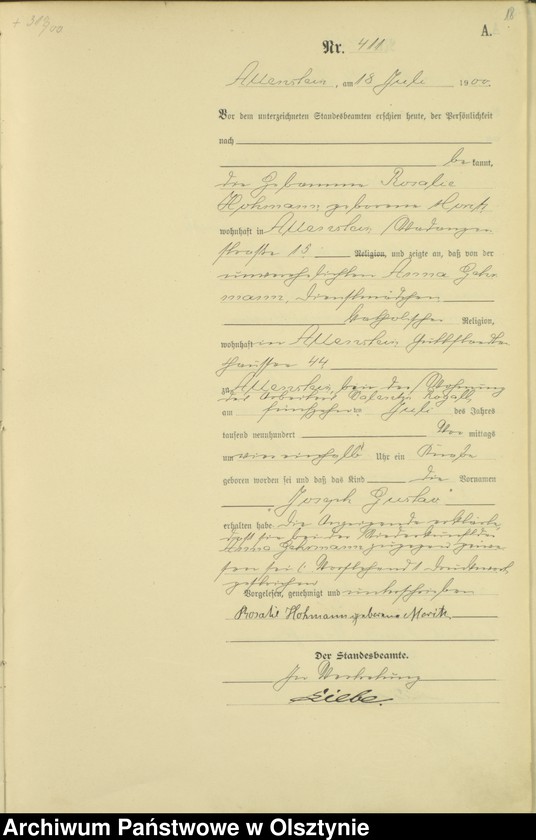 18
A.
Nr. 411
Allenstein, am 18 Juli 1900.
Vor dem unterzeichneten Standesbeamten erschien heute, der Persönlichkeit
nach
bekannt,
die Hebamme Rosalie
Hohmann geborene
wohnhaft in Allenstein, Wadanger
straße 13 Religion, und zeigte an, daß von der
unverehelichten Anna
mann, Dienstmädchen
katholischer Religion,
wohnhaft in Allenstein Guttstaedter
Chaussee 44
zu Allenstein, in der Wohnung
des Arbeiters
am fünfzehnten Juli des Jahres
tausend neunhundert Vormittags
um Uhr ein Knabe
geboren worden sei und daß das Kind die Vornamen
"Joseph Gustav"
erhalten habe. Die Anzeigende erklärte,
daß sie bei der Niederkunft der
Anna zugegen gewe
sen sei. Vorstehend Druckwort
gestrichen
Vorgelesen, genehmigt und unterschrieben
Rosalie Hohmann geborene
Der Standesbeamte.
In Vertretung
Liebe.
Archiwum Państwowe w Olsztynie